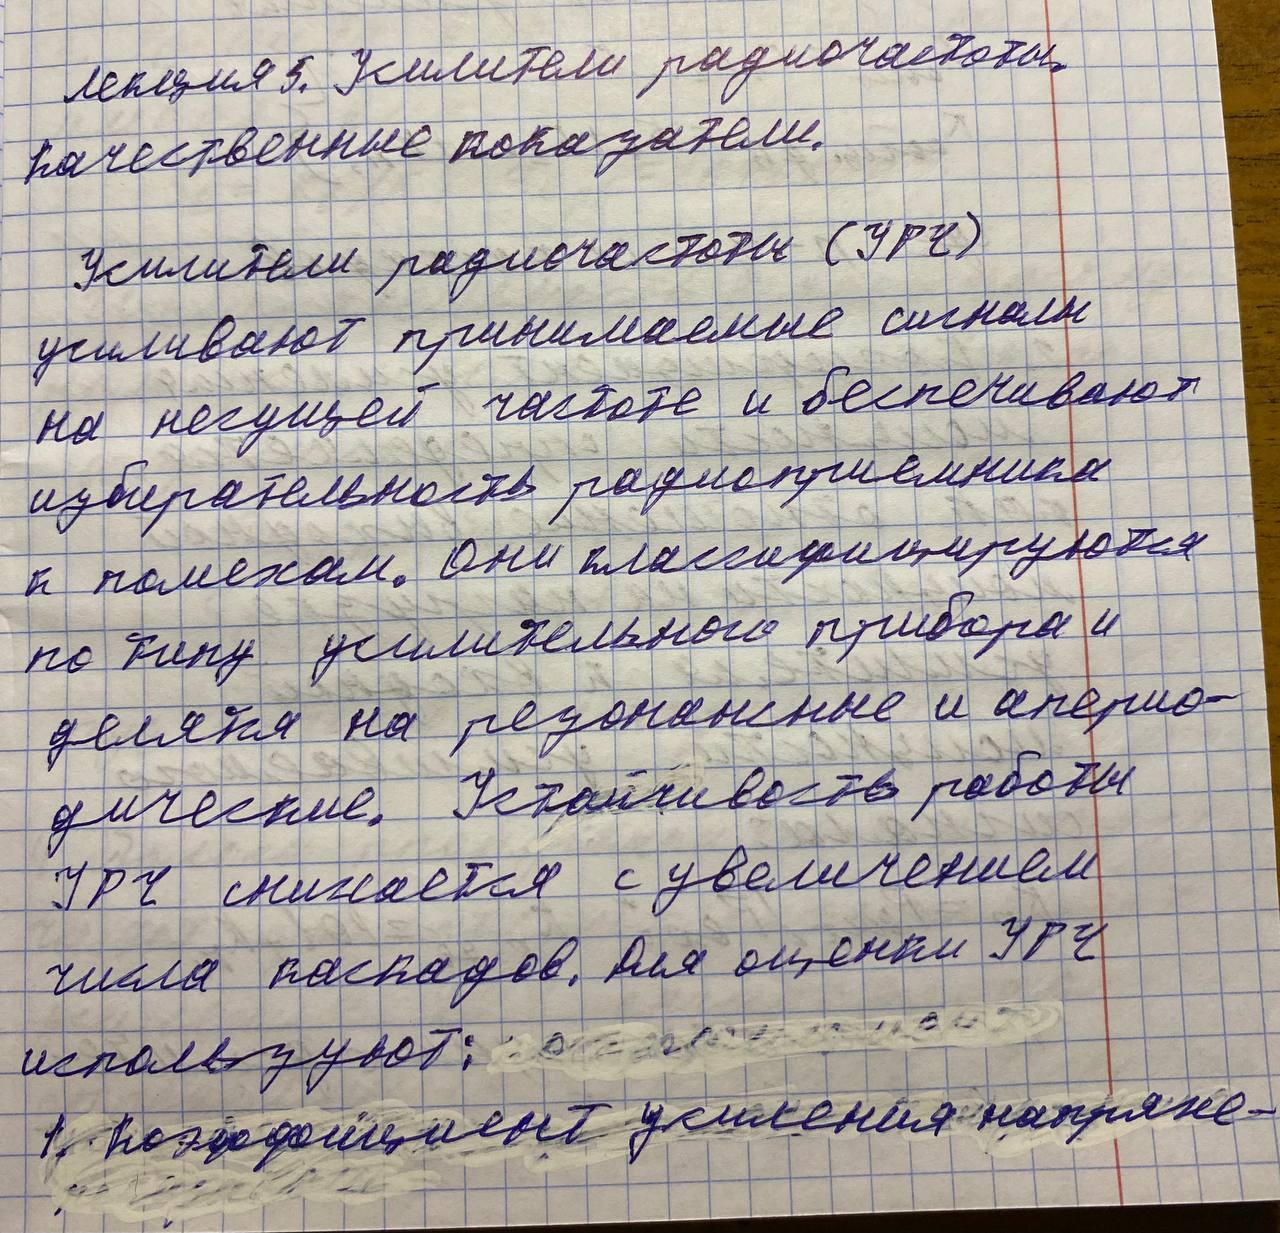 Лекция 5. Усилители радиочастоты.
Качественные показатели.
Усилители радиочастоты (УРЧ)
усиливают принимаемые сигналы
на несущей частоте и беспечивают
избирательность радиоприемника
к помехам. Они классифицируются
по типу усилительного прибора и
делятся на резонансные и аперио-
дические. Устойчивость работы
УРЧ снижается с увеличением
числа каскадов. Для оценки УРЧ
используют:
1. Коэффициент усиления напряже-